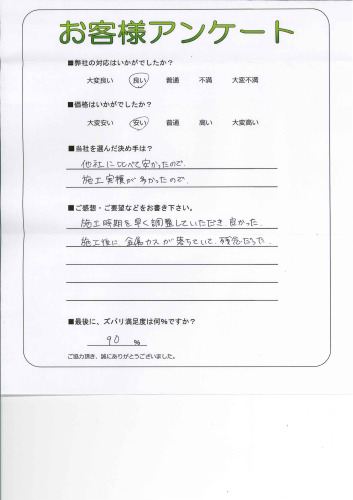 お客様アンケート
■弊社の対応はいかがでしたか？
大変良い 良い 普通 不満 大変不満
■価格はいかがでしたか？
大変安い 安い 普通 高い 大変高い
■当社を選んだ決め手は？
他社に比べて安かったので、
施工実積が多かったので、
■ご感想・ご要望などをお書き下さい。
施工時期を早く調整していただき、良かった。
施工後に金属カスが落ちていて、残念だった。
■最後に、ズバリ満足度は何%ですか？
90 %
ご協力頂き、誠にありがとうございました。